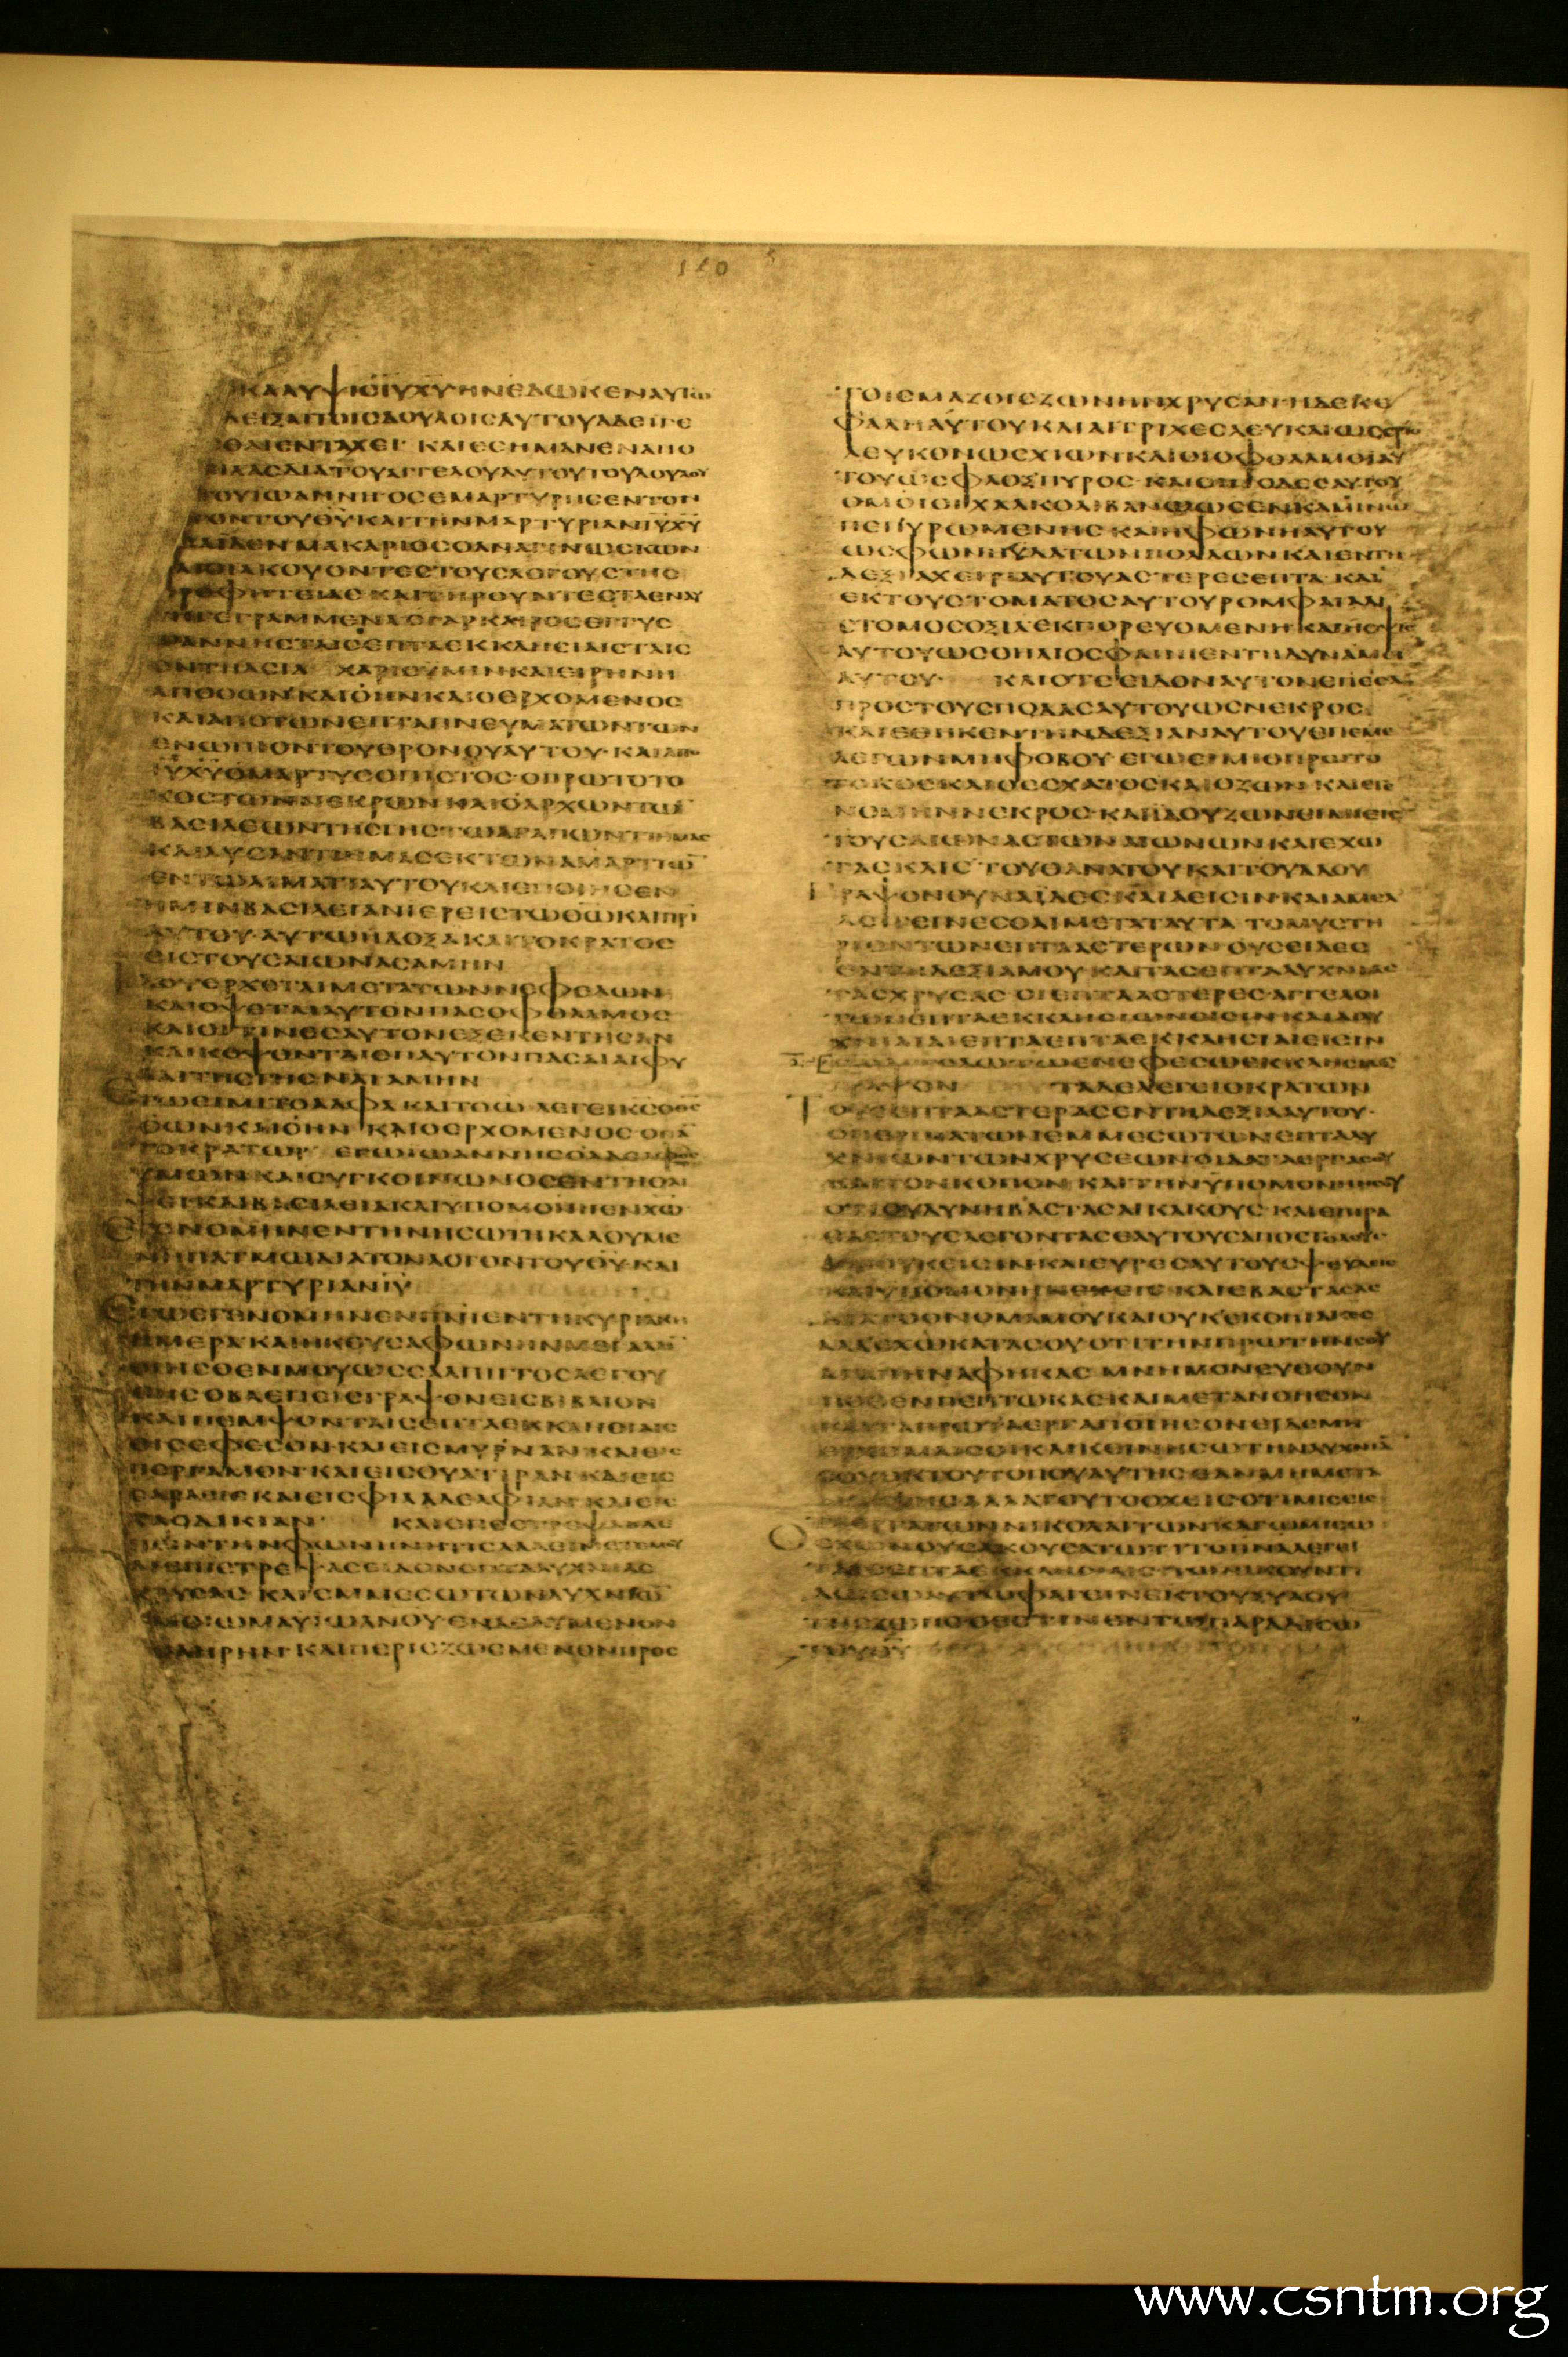 160
ΚΑΛΥΨΙCΙΥΧΥΗΝΕΔΩΚΕΝΑΥΤΩ
ΔΕΙΞΑΙΤΟΙCΔΟΥΛΟΙCΑΥΤΟΥΑΔΕΙΓΕ
ΝΕCΘΑΙΕΝΤΑΧΕΙ ΚΑΙΕCΗΜΑΝΕΝΑΠΟ
CΤΙΛΑCΔΙΑΤΟΥΑΓΓΕΛΟΥΑΥΤΟΥΤΟΥΔΟΥΛΟΥ
ΑΥΤΟΥΙΩΑΝΝΗΓΟCΕΜΑΡΤΥΡΗCΕΝΤΟΝ
ΛΟΓΟΝΤΟΥΘΥΚΑΙΤΗΝΜΑΡΤΥΡΙΑΝΙΥΧΥ
ΟCΑΙΔΕΝ ΜΑΚΑΡΙΟCΟΑΝΑΓΙΝΩCΚΩΝ
ΚΑΙΟΙΑΚΟΥΟΝΤΕCΤΟΥCΛΟΓΟΥCΤΗC
ΠΡΟΦΗΤΕΙΑC ΚΑΙΤΗΡΟΥΝΤΕCΤΑΕΝΑΥ
ΤΗΓΕΓΡΑΜΜΕΝΑΟΓΑΡΚΑΙΡΟCΕΓΓΥC
ΙΩΑΝΝΗCΤΑΙCΕΠΤΑΕΚΚΛΗCΙΑΙCΤΑΙC
ΕΝΤΗΑCΙΑ ΧΑΡΙCΥΜΙΝΚΑΙΕΙΡΗΝΗ
ΑΠΟΟΩΝΚΑΙΟΗΝΚΑΙΟΕΡΧΟΜΕΝΟC
ΚΑΙΑΠΟΤΩΝΕΠΤΑΠΝΕΥΜΑΤΩΝΤΩΝ
ΕΝΩΠΙΟΝΤΟΥΘΡΟΝΟΥΑΥΤΟΥ·ΚΑΙΑΠΟ
ΙΥΧΥΟΜΑΡΤΥCΟΠΙCΤΟC·ΟΠΡΩΤΟΤΟ
ΚΟCΤΩΝΝΕΚΡΩΝΚΑΙΟΑΡΧΩΝΤΩ
ΒΑCΙΛΕΩΝΤΗCΓΗCΤΩΑΓΑΠΩΝΤΙΗΜΑC
ΚΑΙΛΥCΑΝΤΙΗΜΑCΕΚΤΩΝΑΜΑΡΤΙΩ
ΕΝΤΩΑΙΜΑΤΙΑΥΤΟΥΚΑΙΕΠΟΙΗCΕΝ
ΗΜΙΝΒΑCΙΛΕΙΑΝΙΕΡΕΙCΤΩΘΩΚΑΙΠΡΙ
ΑΥΤΟΥ·ΑΥΤΩΗΔΟΞΑΚΑΙΤΟΚΡΑΤΟC
ΕΙCΤΟΥCΑΙΩΝΑCΑΜΗΝ
ΙΔΟΥΕΡΧΕΤΑΙΜΕΤΑΤΩΝΝΕΦΕΛΩΝ
ΚΑΙΟΨΕΤΑΙΑΥΤΟΝΠΑCΟΦΘΑΛΜΟC
ΚΑΙΟΙΤΙΝΕCΑΥΤΟΝΕΞΕΚΕΝΤΗCΑΝ
ΚΑΙΚΟΨΟΝΤΑΙΕΠΑΥΤΟΝΠΑCΑΙΑΙΦΥ
ΛΑΙΤΗCΓΗCΝΑΙΑΜΗΝ
ΕΓΩΕΙΜΙΤΟΑΛΦΑΚΑΙΤΟΩ ΛΕΓΕΙΚCΟΘC
ΟΩΝΚΑΙΟΗΝ ΚΑΙΟΕΡΧΟΜΕΝΟCΟΠΑ
ΤΟΚΡΑΤΩΡ ΕΓΩΙΩΑΝΝΗCΟΑΔΕΛΦΟC
ΥΜΩΝΚΑΙCΥΓΚΟΙΝΩΝΟCΕΝΤΗΘΛΙ
ΨΕΙΚΑΙΒΑCΙΛΕΙΑΚΑΙΥΠΟΜΟΝΗΕΝΧΩ
ΕΓΕΝΟΜΗΝΕΝΤΗΝΗCΩΤΗΚΑΛΟΥΜΕ
ΝΗΠΑΤΜΩΔΙΑΤΟΝΛΟΓΟΝΤΟΥΘΥΚΑΙ
ΤΗΝΜΑΡΤΥΡΙΑΝΙΥ
ΕΓΩΕΓΕΝΟΜΗΝΕΝΠΝΙΕΝΤΗΚΥΡΙΑΚΗ
ΗΜΕΡΑΚΑΙΗΚΟΥCΑΦΩΝΗΝΜΕΓΑΛΗ
ΟΠΙCΘΕΝΜΟΥΩCCΑΛΠΙΓΓΟCΛΕΓΟΥ
CΗCΟΒΛΕΠΕΙCΓΡΑΨΟΝΕΙCΒΙΒΛΙΟΝ
ΚΑΙΠΕΜΨΟΝΤΑΙCΕΠΤΑΕΚΚΛΗCΙΑΙC
ΕΙCΕΦΕCΟΝΚΑΙΕΙCΜΥΡΝΑΝΚΑΙΕΙC
ΠΕΡΓΑΜΟΝΚΑΙΕΙCΘΥΑΤΙΡΑΝΚΑΙΕΙC
CΑΡΔΙCΚΑΙΕΙCΦΙΛΑΔΕΛΦΙΑΝΚΑΙΕΙC
ΛΑΟΔΙΚΙΑΝ ΚΑΙΕΠΕCΤΡΕΨΑΒΛΕ
ΚΑΙΕΠΙCΤΡΕΨΑCΕΙΔΟΝΕΠΤΑΛΥΧΝΙΑC
ΧΡΥCΑC ΚΑΙΕΜΜΕCΩΤΩΝΛΥΧΝΙΩ
ΟΜΟΙΩΜΑΥΙΩΑΝΟΥΕΝΔΕΔΥΜΕΝΟΝ
ΠΟΔΗΡΗΝ·ΚΑΙΠΕΡΙΕΖΩCΜΕΝΟΝΠΡΟC
ΤΟΙCΜΑΖΟΙCΖΩΝΗΝΧΡΥCΑΝ·ΗΔΕΚΕ
ΦΑΛΗΑΥΤΟΥΚΑΙΑΙΤΡΙΧΕCΛΕΥΚΑΙΩCΕΡΙΟ
ΛΕΥΚΟΝΩCΧΙΩΝΚΑΙΟΙΟΦΘΑΛΜΟΙΑΥ
ΤΟΥΩCΦΛΟΞΠΥΡΟC·ΚΑΙΟΙΠΟΔΕCΑΥΤΟΥ
ΟΜΟΙΟΙΧΑΛΚΟΛΙΒΑΝΩΩCΕΝΚΑΜΙΝΩ
ΠΕΠΥΡΩΜΕΝΗC ΚΑΙΗΦΩΝΗΑΥΤΟΥ
ΩCΦΩΝΗΥΔΑΤΩΝΠΟΛΛΩΝ ΚΑΙΕΝΤΗ
ΔΕΞΙΑΧΕΙΡΙΑΥΤΟΥΑCΤΕΡΕCΕΠΤΑ ΚΑΙ
ΕΚΤΟΥCΤΟΜΑΤΟCΑΥΤΟΥΡΟΜΦΑΙΑΔΙ
CΤΟΜΟCΟΞΙΑΕΚΠΟΡΕΥΟΜΕΝΗΚΑΙΗΟΨΙC
ΑΥΤΟΥΩCΟΗΛΙΟCΦΑΙΝΙΕΝΤΗΔΥΝΑΜΕΙ
ΑΥΤΟΥ· ΚΑΙΟΤΕΕΙΔΟΝΑΥΤΟΝΕΠΕCΑ
ΠΡΟCΤΟΥCΠΟΔΑCΑΥΤΟΥΩCΝΕΚΡΟC
ΚΑΙΕΘΗΚΕΝΤΗΝΔΕΞΙΑΝΑΥΤΟΥΕΠΕΜΕ
ΛΕΓΩΝΜΗΦΟΒΟΥ ΕΓΩΕΙΜΙΟΠΡΩΤΟ
ΤΟΚΟCΚΑΙΟΕCΧΑΤΟCΚΑΙΟΖΩΝ ΚΑΙΕΓΕ
ΝΟΜΗΝΝΕΚΡΟC·ΚΑΙΙΔΟΥΖΩΝΕΙΜΙΕΙC
ΤΟΥCΑΙΩΝΑCΤΩΝΑΙΩΝΩΝ ΚΑΙΕΧΩ
ΤΑCΚΛΙC ΤΟΥΘΑΝΑΤΟΥΚΑΙΤΟΥΑΔΟΥ
ΓΡΑΨΟΝΟΥΝΑΙΔΕC ΚΑΙΑΕΙCΙΝΚΑΙΑΜΕΛ
ΛΕΙΓΕΙΝΕCΘΑΙΜΕΤΑΤΑΥΤΑ ΤΟΜΥCΤΗ
ΡΙΟΝΤΩΝΕΠΤΑΑCΤΕΡΩΝ ΟΥCΕΙΔΕC
ΕΝΤΗΔΕΞΙΑΜΟΥ ΚΑΙΤΑCΕΠΤΑΛΥΧΝΙΑC
ΤΑCΧΡΥCΑC ΟΙΕΠΤΑΑCΤΕΡΕC·ΑΓΓΕΛΟΙ
ΤΩΝΕΠΤΑΕΚΚΛΗCΙΩΝΕΙCΙΝ ΚΑΙΑΙΛΥ
ΧΝΙΑΙΑΙΕΠΤΑΕΠΤΑΕΚΚΛΗCΙΑΙΕΙCΙΝ
ΤΩΕΝΕΦΕCΩΕΚΚΛΗCΙΑC
ΓΡΑΨΟΝ ΤΑΔΕΛΕΓΕΙΟΚΡΑΤΩΝ
ΤΟΥCΕΠΤΑΑCΤΕΡΑCΕΝΤΗΔΕΞΙΑΑΥΤΟΥ·
ΟΠΕΡΙΠΑΤΩΝΕΜΜΕCΩΤΩΝΕΠΤΑΛΥ
ΧΝΙΩΝΤΩΝΧΡΥCΕΩΝΟΙΔΑΤΑΕΡΓΑCΟΥ
ΚΑΙΤΟΝΚΟΠΟΝ ΚΑΙΤΗΝΥΠΟΜΟΝΗΝCΟΥ
ΟΤΙΟΥΔΥΝΗΒΑCΤΑCΑΙΚΑΚΟΥC ΚΑΙΕΠΙΡΑ
CΑCΤΟΥCΛΕΓΟΝΤΑCΕΑΥΤΟΥCΑΠΟCΤΟΛΟΥC
ΚΑΙΟΥΚΕΙCΙΝΚΑΙΕΥΡΕCΑΥΤΟΥCΨΕΥΔΕΙC
ΚΑΙΥΠΟΜΟΝΗΝΕΧΕΙC ΚΑΙΕΒΑCΤΑCΑC
ΔΙΑΤΟΟΝΟΜΑΜΟΥΚΑΙΟΥΚΕΚΟΠΙΑΚΕC
ΑΛΛΕΧΩΚΑΤΑCΟΥΟΤΙΤΗΝΠΡΩΤΗΝCΟΥ
ΑΓΑΠΗΝΑΦΗΚΑC ΜΝΗΜΟΝΕΥΕΟΥΝ
ΠΟΘΕΝΠΕΠΤΩΚΑCΚΑΙΜΕΤΑΝΟΗCΟΝ
ΚΑΙΤΑΠΡΩΤΑΕΡΓΑΠΟΙΗCΟΝΕΙΔΕΜΗ
ΕΡΧΟΜΑΙCΟΙΚΑΙΚΕΙΝΗCΩΤΗΝΛΥΧΝΙΑ
CΟΥΕΚΤΟΥΤΟΠΟΥΑΥΤΗCΕΑΝΜΗΜΕΤΑ
ΑΛΛΑΤΟΥΤΟΕΧΕΙCΟΤΙΜΙCΕΙC
ΝΙΚΟΛΑΙΤΩΝΚΑΓΩΜΙCΩ
ΟΕΧΩΝΟΥCΑΚΟΥCΑΤΩΤΙΤΟΠΝΑΛΕΓΕΙ
ΤΑΙCΕΠΤΑΕΚΚΛΗCΙΑΙCΤΩΝΙΚΟΥΝΤΙ
ΔΩCΩΑΥΤΩΦΑΓΕΙΝΕΚΤΟΥΞΥΛΟΥ
ΤΗCΖΩΗCΟΕCΤΙΝΕΝΤΩΠΑΡΑΔΙCΩ
ΤΟΥΘΥ
www.csntm.org